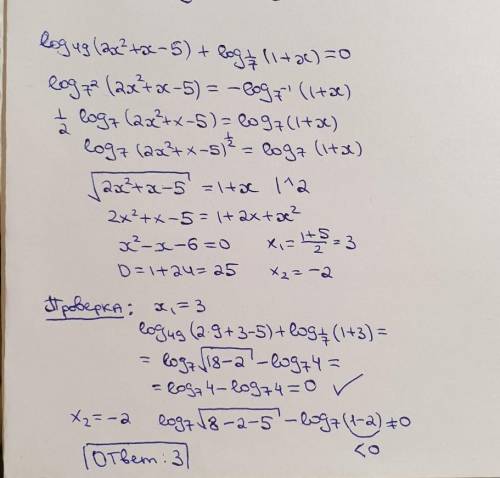 log₄₉(2x²+x-5) + log_{1/7}(1+x)=0
log_{7²}(2x²+x-5) = -log_{7⁻¹}(1+x)
1/2 log₇(2x²+x-5) = log₇(1+x)
log₇(2x²+x-5)^{1/2} = log₇(1+x)
√(2x²+x-5) = 1+x |^2
2x²+x-5 = 1+2x+x²
x²-x-6=0 x₁=(1+5)/2=3
D=1+24=25 x₂=-2
Проверка: x₁=3
log₄₉(2·9+3-5)+log_{1/7}(1+3)=
= log₇√(18-2) - log₇4 =
= log₇4 - log₇4 = 0 ✓
x₂=-2 log₇√(8-2-5) - log₇(1-2) ≠0
<0
Ответ: 3